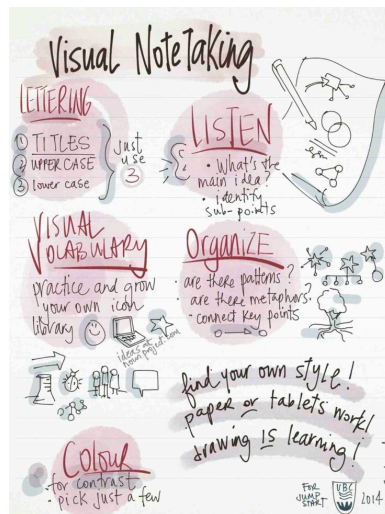 Visual NoteTaking
LETTERING
① TITLES
② UPPER CASE
③ lower case
just
use
3
LISTEN
• What's the
main idea?
• identify
sub-points
VISUAL
VOCABULARY
practice and grow
your own icon
library
ideas at
noun project.com
ORGANIZE
• are there patterns?
• are there metaphors?
• connect key points
find your own style!
paper or tablets work!
drawing IS learning!
COLOUR
• for contrast
• pick just a few
FOR
JUMP
START
UBC
2014